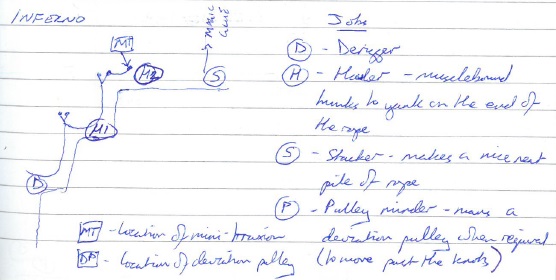 INFERNO
MAGIC
Jobs
MT
D - Derigger
M2
S
H - Hauler - musclebound
hunks to yank on the end of
the rope
M1
S - Stacker - makes a nice neat
pile of rope
D
P - Pulley minder - mans a
deviation pulley when required
(to move past the knots)
MT - location of mini-traxion
DP - location of deviation pulley